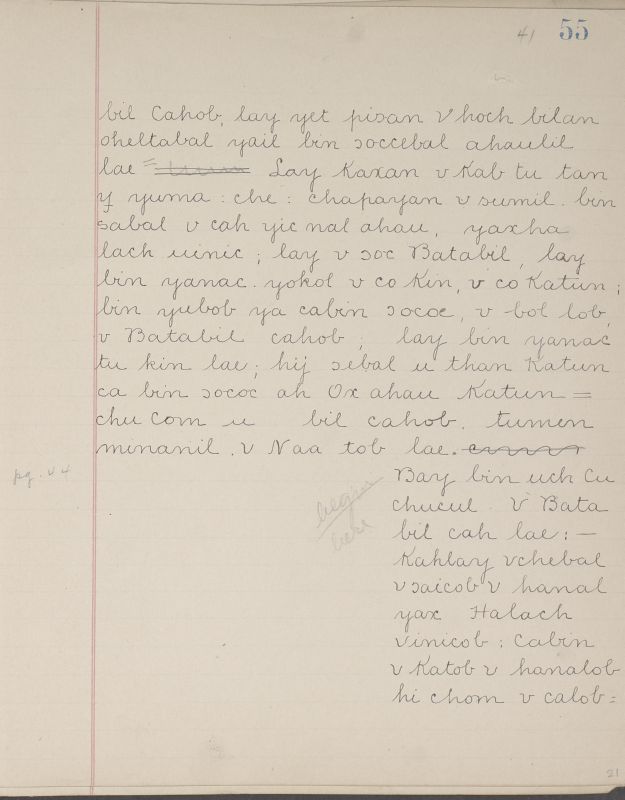 41 55
bil Cahob, lay yet pisan v hoch bilan
oheltabal yail bin soccebal ahaulil
lae = Lay Kaxan v Kab tu tan
y yuma : che : chapayan v sumil. bin
sabal v cah yic nal ahau, yaxha
lach uinic ; lay v soc Batabil, lay
bin yanac. yokol v co Kin, v co Katun ;
bin yubob ya cabin sococ, v bol lob,
v Batabil cahob ; lay bin yanac
tu kin lae ; hij sebal u than Katun
ca bin sococ ah Ox ahau Katun =
chu Com u bil cahob. tumen
minanil. v Naa tob lae.
pg. v 4
Bay bin uch Cu
chucul v Bata
begin here
bil cah lae : —
Kahlay vchebal
v saicob v hanal
yax Halach
vinicob : Cabin
v Katob v hanalob
hi chom v calob =
21